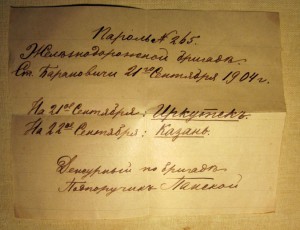 Пароль № 265.
Желѣзнодорожной бригадѣ.
Ст. Барановичи 21го Сентября 1904 г.
На 21ое Сентября: Иркутскъ.
На 22ое Сентября: Казань.
Дежурный по бригадѣ
Подпоручикъ Панской